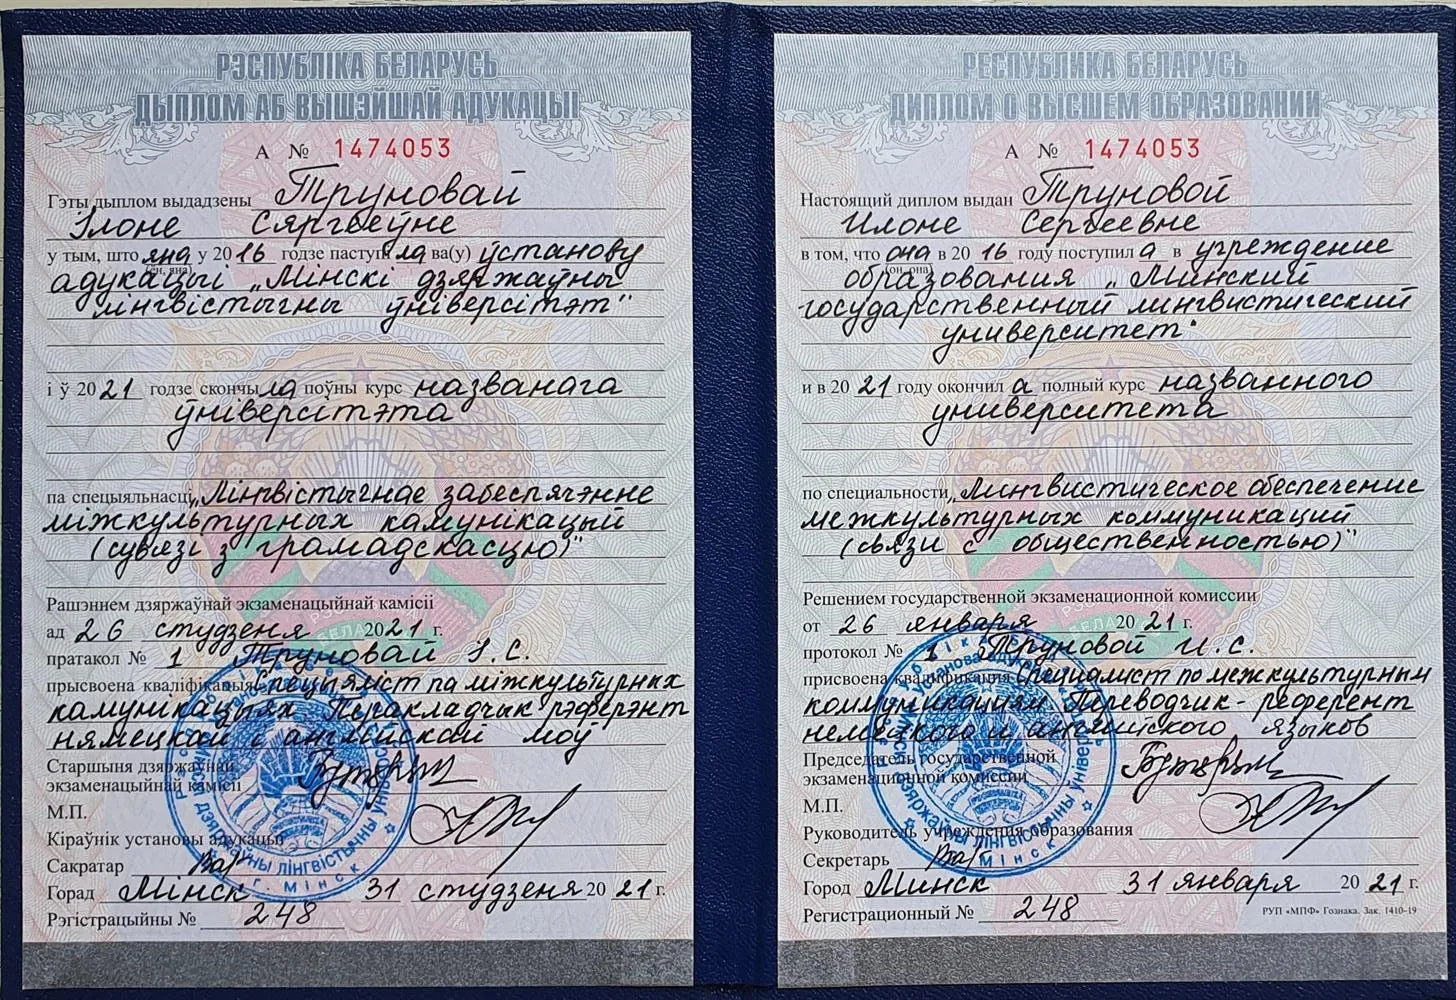 РЭСПУБЛІКА БЕЛАРУСЬ
ДЫПЛОМ АБ ВЫШЭЙШАЙ АДУКАЦЫІ
А № 1474053
Гэты дыплом выдадзены Труновай
Ілоне Сяргееўне
у тым, што яна у 2016 годзе паступіла ва(у) ўстанову
(ён, яна)
адукацыі „Мінскі дзяржаўны
лінгвістычны ўніверсітэт"
і ў 2021 годзе скончыла поўны курс названага
ўніверсітэта
па спецыяльнасці „Лінгвістычнае забеспячэнне
міжкультурных камунікацый
(сувязі з грамадскасцю)"
Рашэннем дзяржаўнай экзаменацыйнай камісіі
ад 26 студзеня 2021 г.
пратакол № 1 Труновай І.С.
прысвоена кваліфікацыя Спецыяліст па міжкультурных
камунікацыях Перакладчык-рэферэнт
нямецкай і англійскай моў
Старшыня дзяржаўнай
экзаменацыйнай камісіі
М.П.
Кіраўнік установы адукацыі
Сакратар
Горад Мінск 31 студзеня 2021 г.
Рэгістрацыйны № 248
РЕСПУБЛИКА БЕЛАРУСЬ
ДИПЛОМ О ВЫСШЕМ ОБРАЗОВАНИИ
А № 1474053
Настоящий диплом выдан Труновой
Илоне Сергеевне
в том, что она в 2016 году поступила в учреждение
(он, она)
образования „Минский
государственный лингвистический
университет"
и в 2021 году окончила полный курс названного
университета
по специальности „Лингвистическое обеспечение
межкультурных коммуникаций
(связи с общественностью)"
Решением государственной экзаменационной комиссии
от 26 января 2021 г.
протокол № 1 Труновой И.С.
присвоена квалификация Специалист по межкультурным
коммуникациям Переводчик-референт
немецкого и английского языков
Председатель государственной
экзаменационной комиссии
М.П.
Руководитель учреждения образования
Секретарь
Город Минск 31 января 2021 г.
Регистрационный № 248
РУП «МПФ» Гознака. Зак. 1410-19